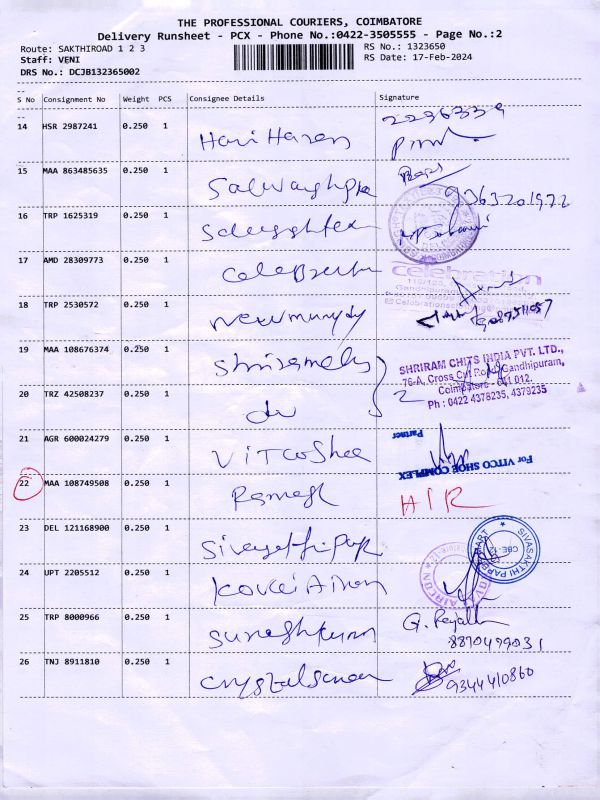 THE PROFESSIONAL COURIERS, COIMBATORE
Delivery Runsheet - PCX - Phone No.:0422-3505555 - Page No.:2
Route: SAKTHIROAD 1 2 3 RS No.: 1323650
Staff: VENI RS Date: 17-Feb-2024
DRS No.: DCJB132365002
S No Consignment No Weight PCS Consignee Details Signature
14 HSR 2987241 0.250 1 Hari Haran
15 MAA 863485635 0.250 1
9363201972
16 TRP 1625319 0.250 1
17 AMD 28309773 0.250 1
celebration
18 TRP 2530572 0.250 1
19 MAA 108676374 0.250 1
SHRIRAM CHITS INDIA PVT. LTD.,
76-A, Cross Cut Road, Gandhipuram,
Coimbatore - 641 012.
Ph : 0422 4378235, 4379235
20 TRZ 42508237 0.250 1 do 2
21 AGR 600024279 0.250 1 Vitco Shoe
Partner
For VITCO SHOE COMPLEX
22 MAA 108749508 0.250 1 Ramesh
23 DEL 121168900 0.250 1
SIVASAKTHI PAPER MART
CBE-12
24 UPT 2205512 0.250 1 Kovai Aircon
AIRCON
25 TRP 8000966 0.250 1 Sureshkumar
8810499031
26 TNJ 8911810 0.250 1
9344410860